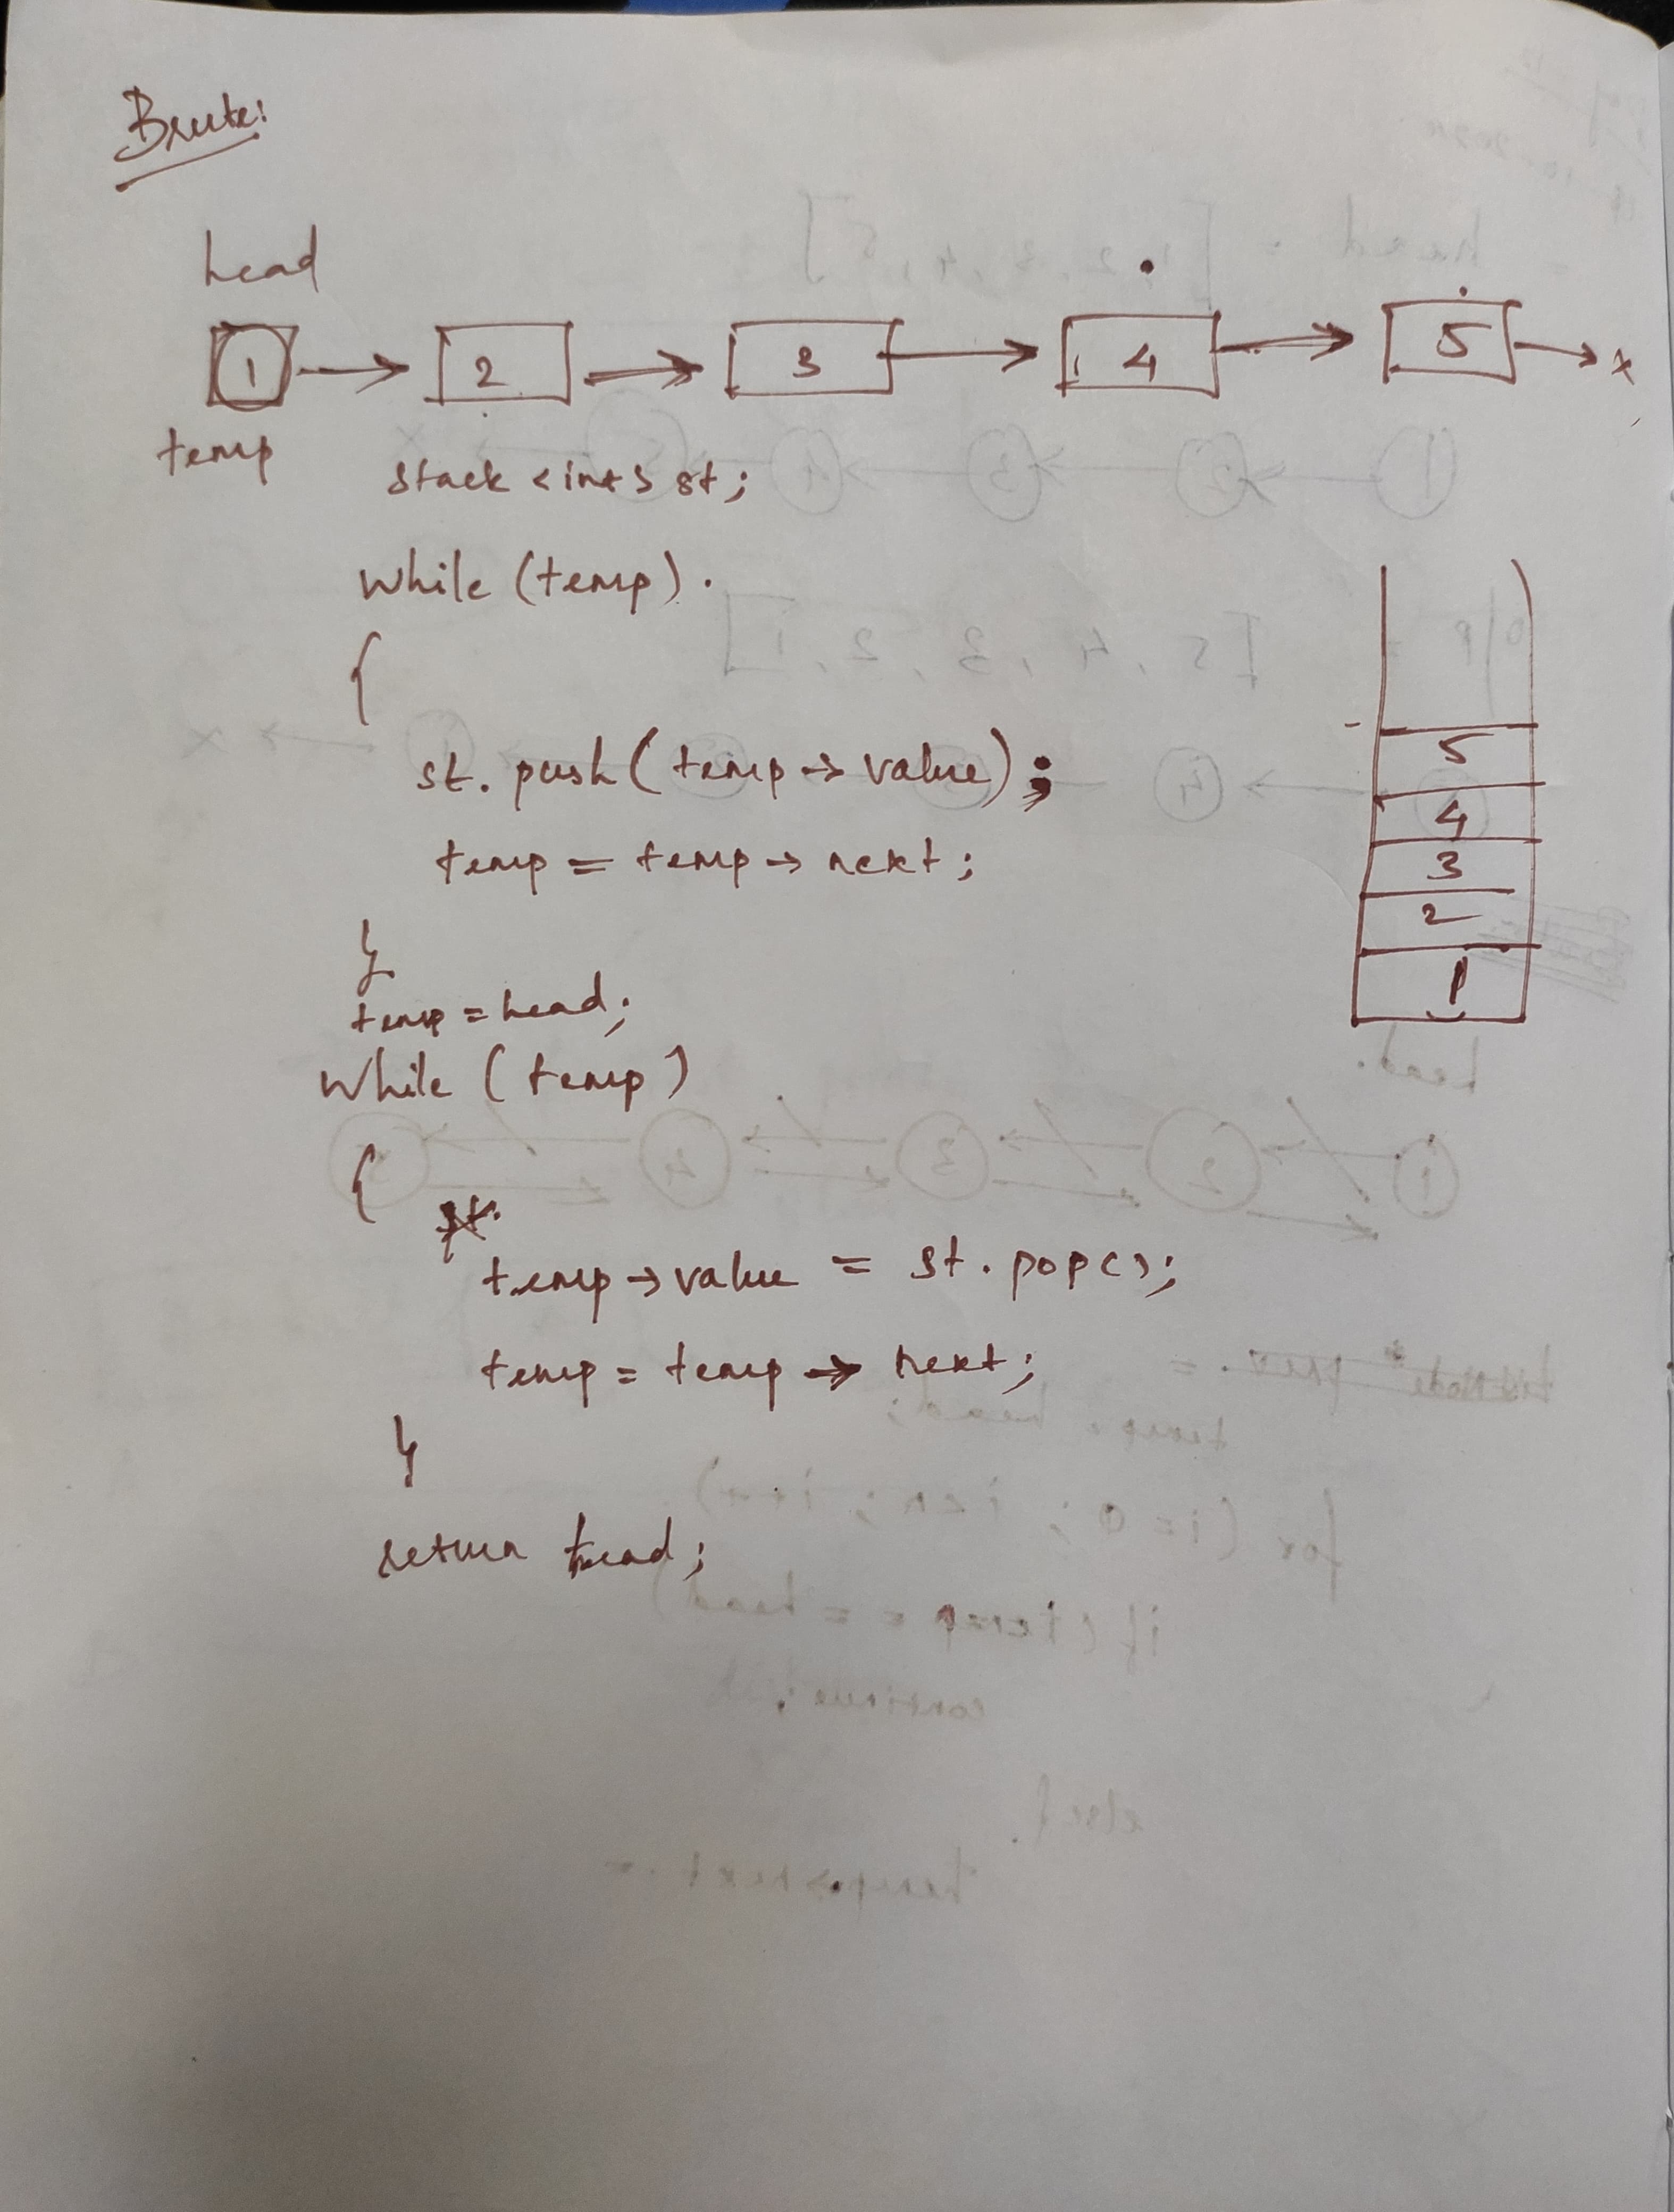 Brute:
head
1 → 2 → 3 → 4 → 5 → x
temp
stack <int> st;
while (temp).
{
st. push (temp → value);
temp = temp → next;
}
temp = head;
while (temp)
{
st.
temp → value = st. pop();
temp = temp → next;
}
return head;
5
4
3
2
1